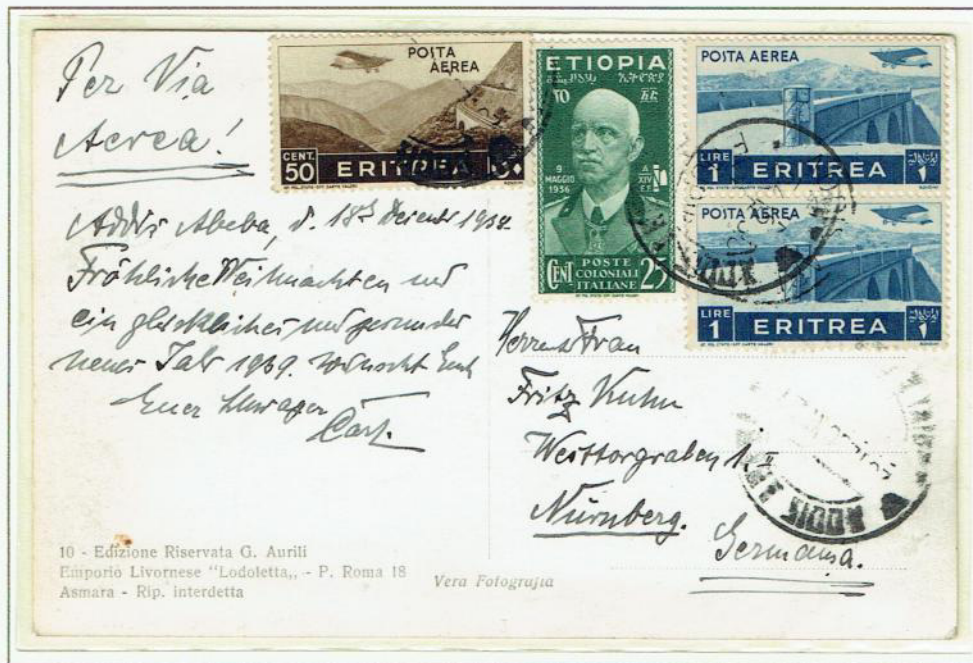 Per Via
Aerea!
POSTA
AEREA
CENT.
50
ERITREA
ETIOPIA
9
MAGGIO
1936
A
XIV
E.F.
POSTE
COLONIALI
ITALIANE
CENT
25
POSTA AEREA
LIRE
1
ERITREA
1
POSTA AEREA
LIRE
1
ERITREA
1
Addis Abeba, d. 18. 1938
Fröhliche Weihnachten und
ein glückliches und gesundes
neues Jahr 1939. wünscht Euch
Euer Schwager
Carl.
Herrn & Frau
Fritz Kuhn
Westtorgraben 1. II
Nürnberg.
Germania.
ADDIS
10 - Edizione Riservata G. Aurili
Emporio Livornese "Lodoletta„ - P. Roma 18
Asmara - Rip. interdetta
Vera Fotografia